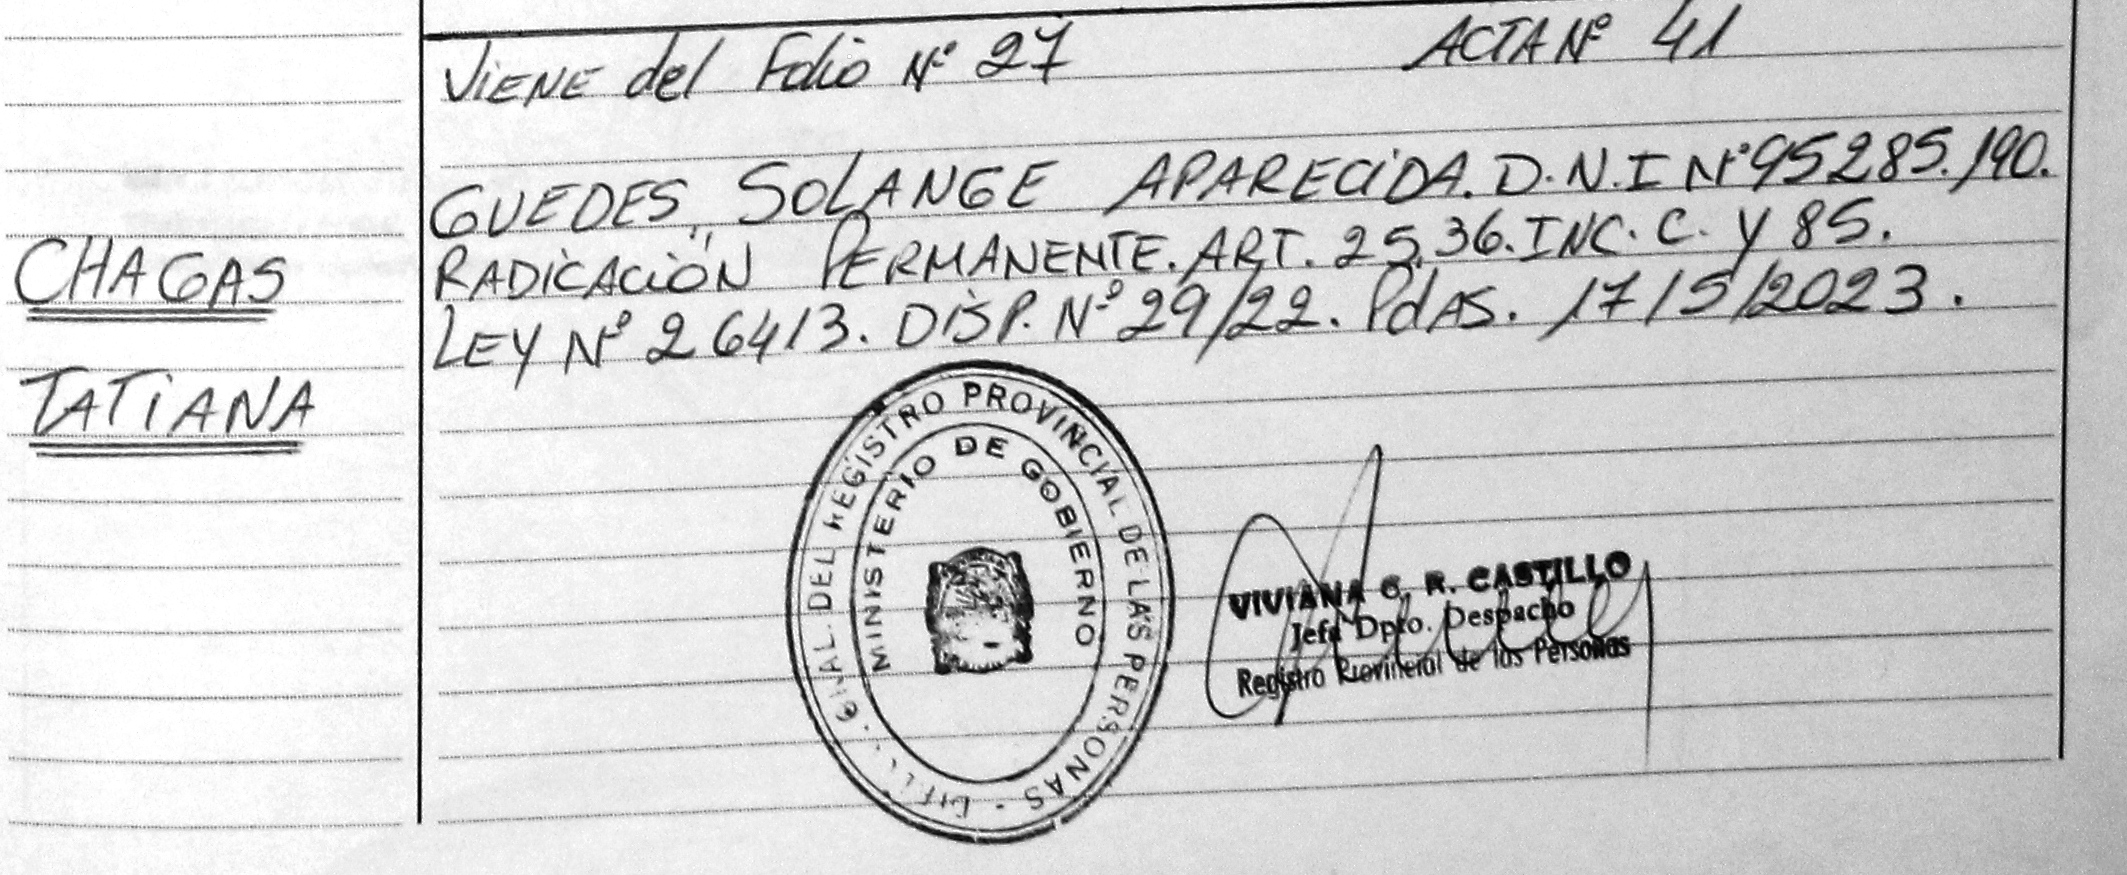 Viene del Folio Nº 27 ACTA Nº 41
GUEDES, SOLANGE APARECIDA. D.N.I Nº 95285.190.
RADICACIÓN PERMANENTE. ART. 25.36. INC. C. Y 85.
LEY Nº 26413. DISP. Nº 29/22. PdAS. 17/5/2023.
CHAGAS
TATIANA
DEL REGISTRO PROVINCIAL DE LAS PERSONAS -
MINISTERIO DE GOBIERNO
VIVIANA C. R. CASTILLO
Jefa Dpto. Despacho
Registro Provincial de las Personas